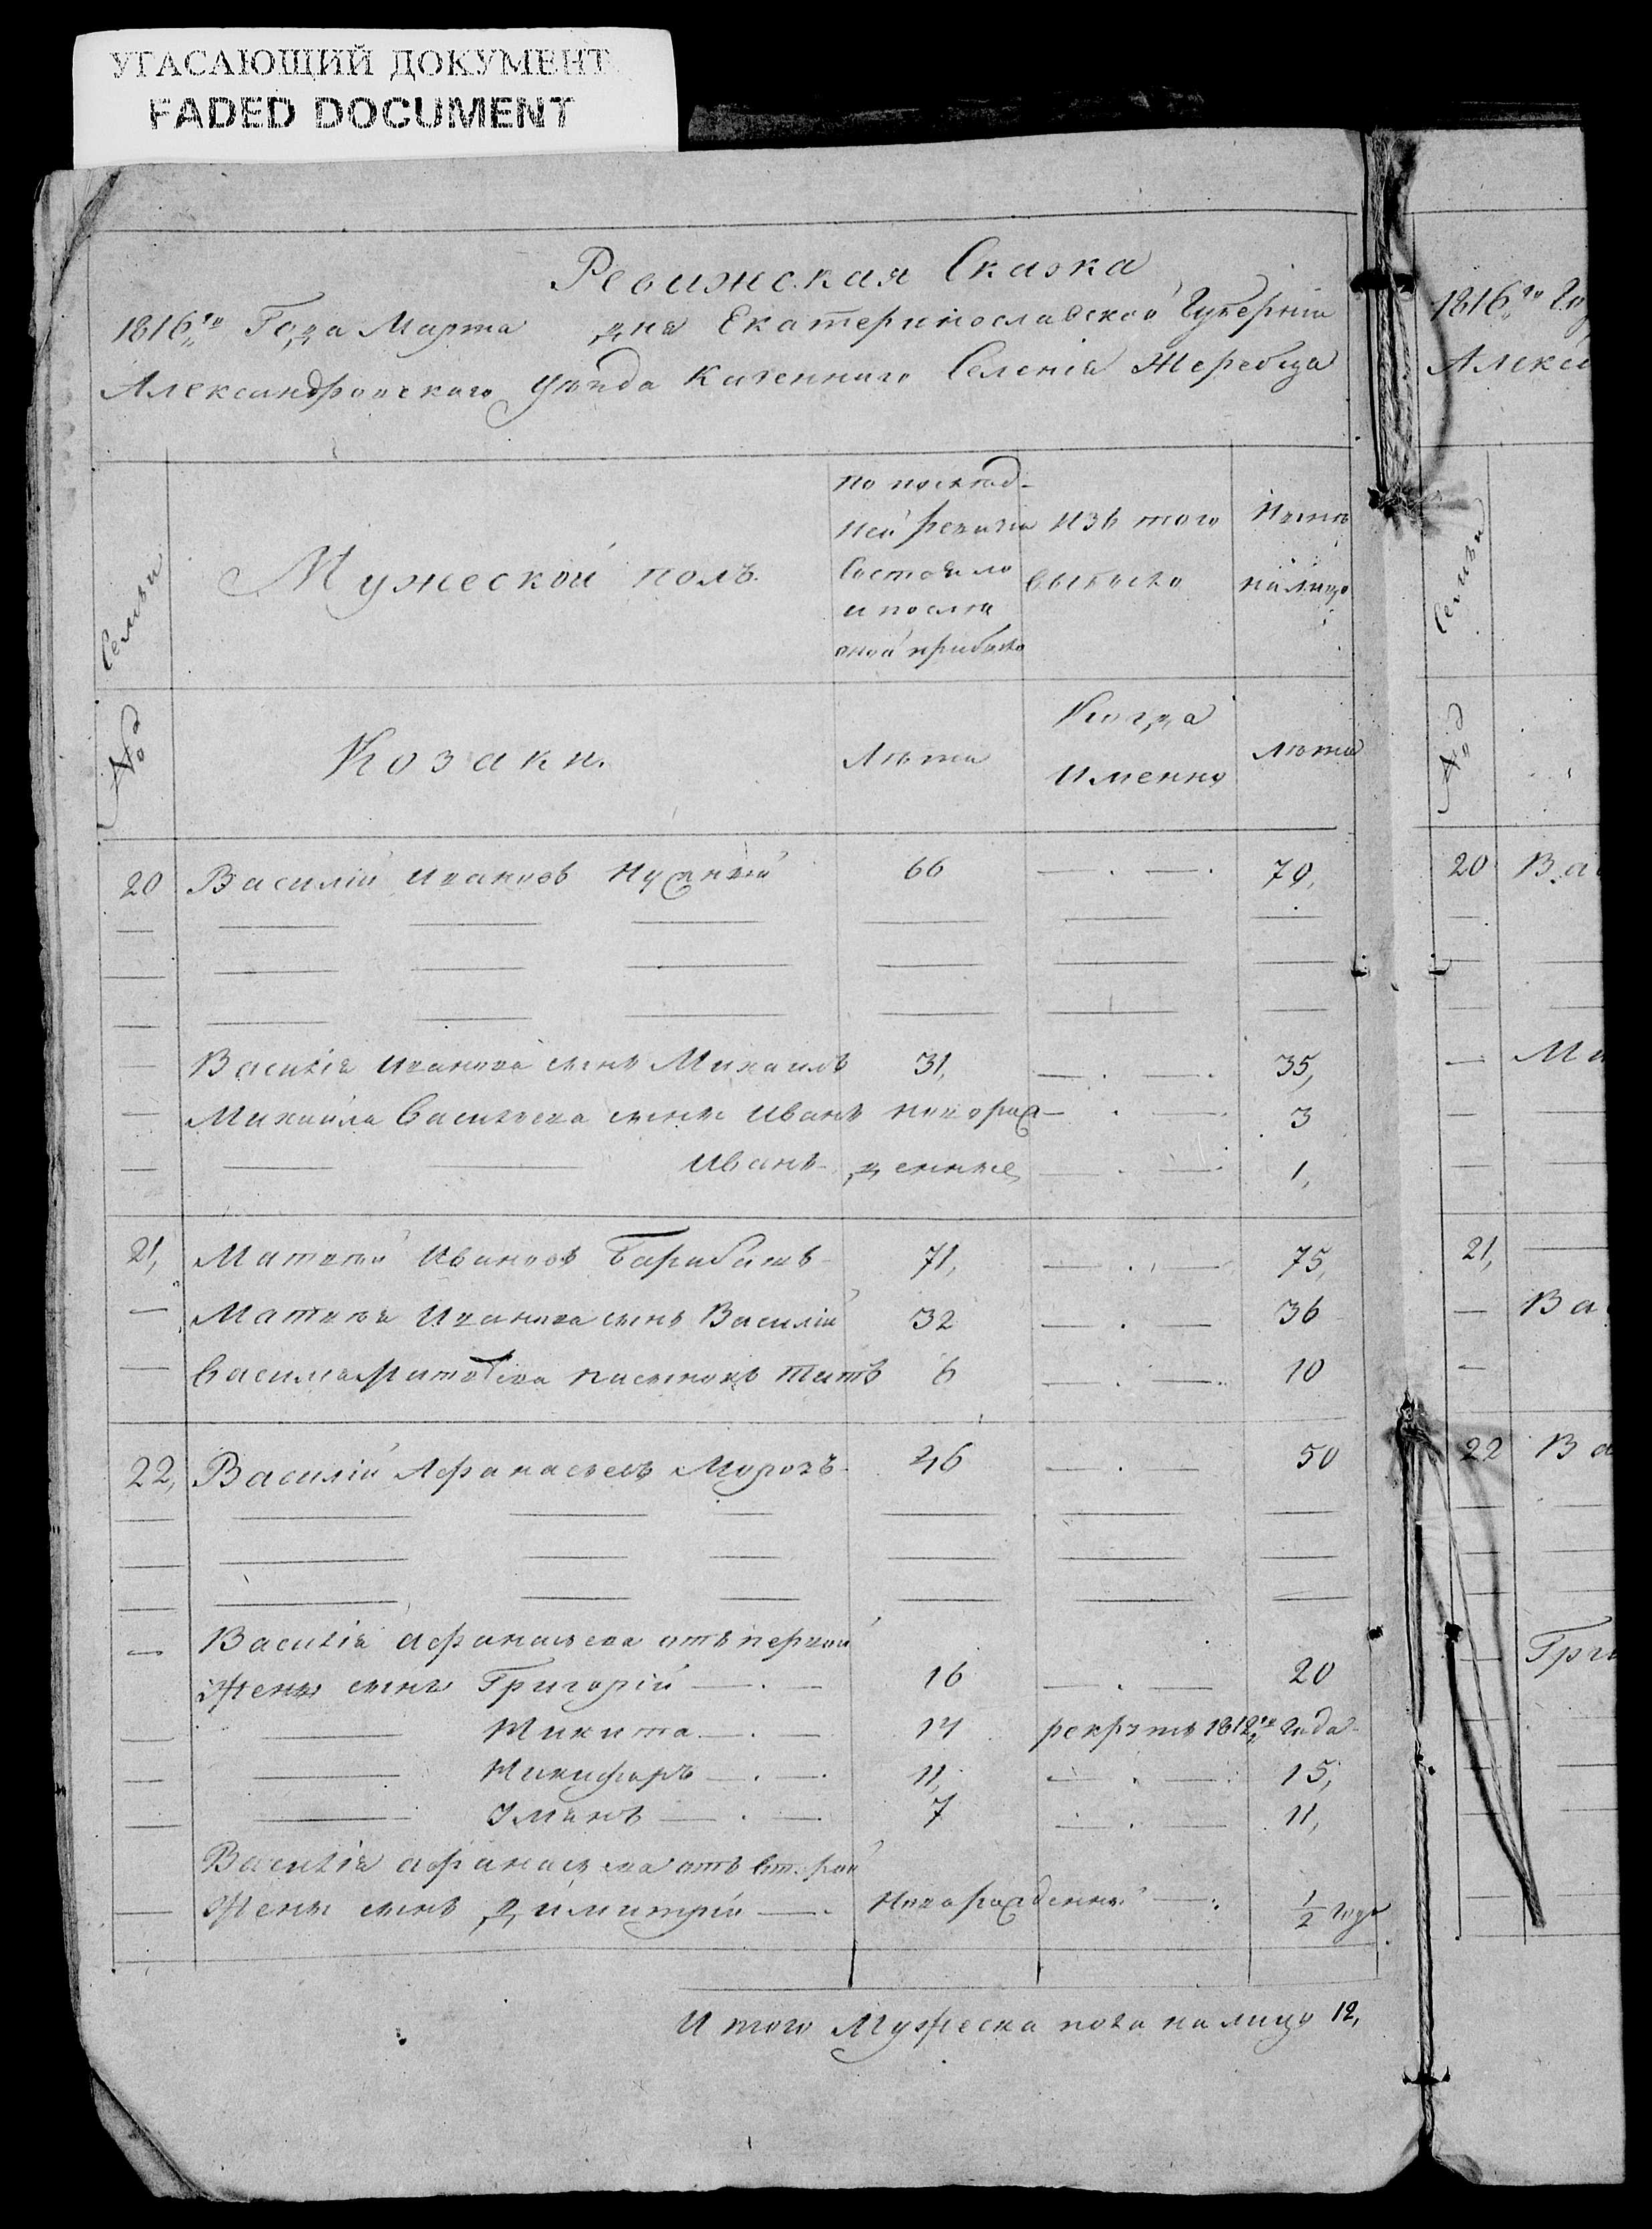 УГАСАЮЩИЙ ДОКУМЕНТ
FADED DOCUMENT
Ревижская Сказка
1816го Года Марта дня Екатеринославской Губерніи
Александровскаго уѣзда Казеннаго Селенія Жеребца
Семьи
Мужеской полъ.
по послѣд-
ней ревизіи
состояло
и послѣ
оной прибыло
Изъ того
выбыло
Нынѣ
на лицо
№
Козаки.
Лѣта
Когда
Именно
Лѣта
20 Василій Ивановъ 66 — . — . 70,
Василія Иванова сынъ Михаилъ 31, — . — . 35,
Михайла Васильева сынъ Иванъ новорож— . — . 3
Иванъ денные — . — . 1,
21, Матвѣй Ивановъ Барабашъ 71, — . — 75,
Матвѣя Иванова сынъ Василій 32 — . — 36
Василія Матвѣева пасынокъ Титъ 6 — . — . 10
22, Василій Афанасьевъ Морозъ 46 — . — 50
Василія Афанасьева отъ первой
Жены сынъ Григорій — . — 16 — . — 20
Никита — . — 14 рекрутъ 1812го Года
Никифоръ — . — . 11, — . — . 15,
— . — 7 — . — . 11,
Василія Афанасьева отъ второй
Жены сынъ Димитрій — . Новорожденный — . ½ года
Итого Мужеска пола на лицо 12,
1816го Го
Алекса
Семьи
№
20 Ва
Ми
21,
Ва
22 Ва
Григ